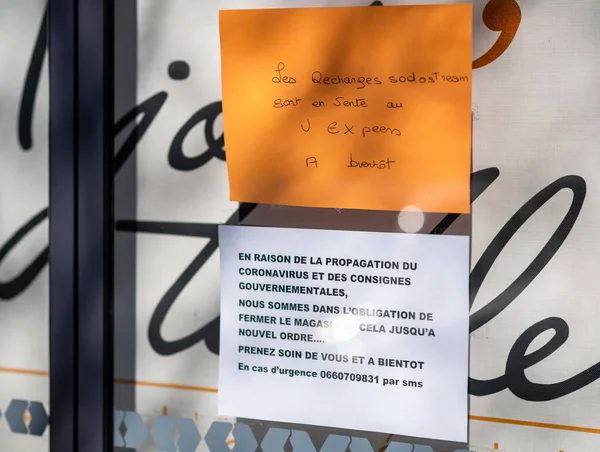 Les Recharges sodostream
sont en vente au
U Express
A bientôt
EN RAISON DE LA PROPAGATION DU
CORONAVIRUS ET DES CONSIGNES
GOUVERNEMENTALES,
NOUS SOMMES DANS L'OBLIGATION DE
FERMER LE MAGASIN CELA JUSQU'A
NOUVEL ORDRE....
PRENEZ SOIN DE VOUS ET A BIENTOT
En cas d'urgence 0660709831 par sms